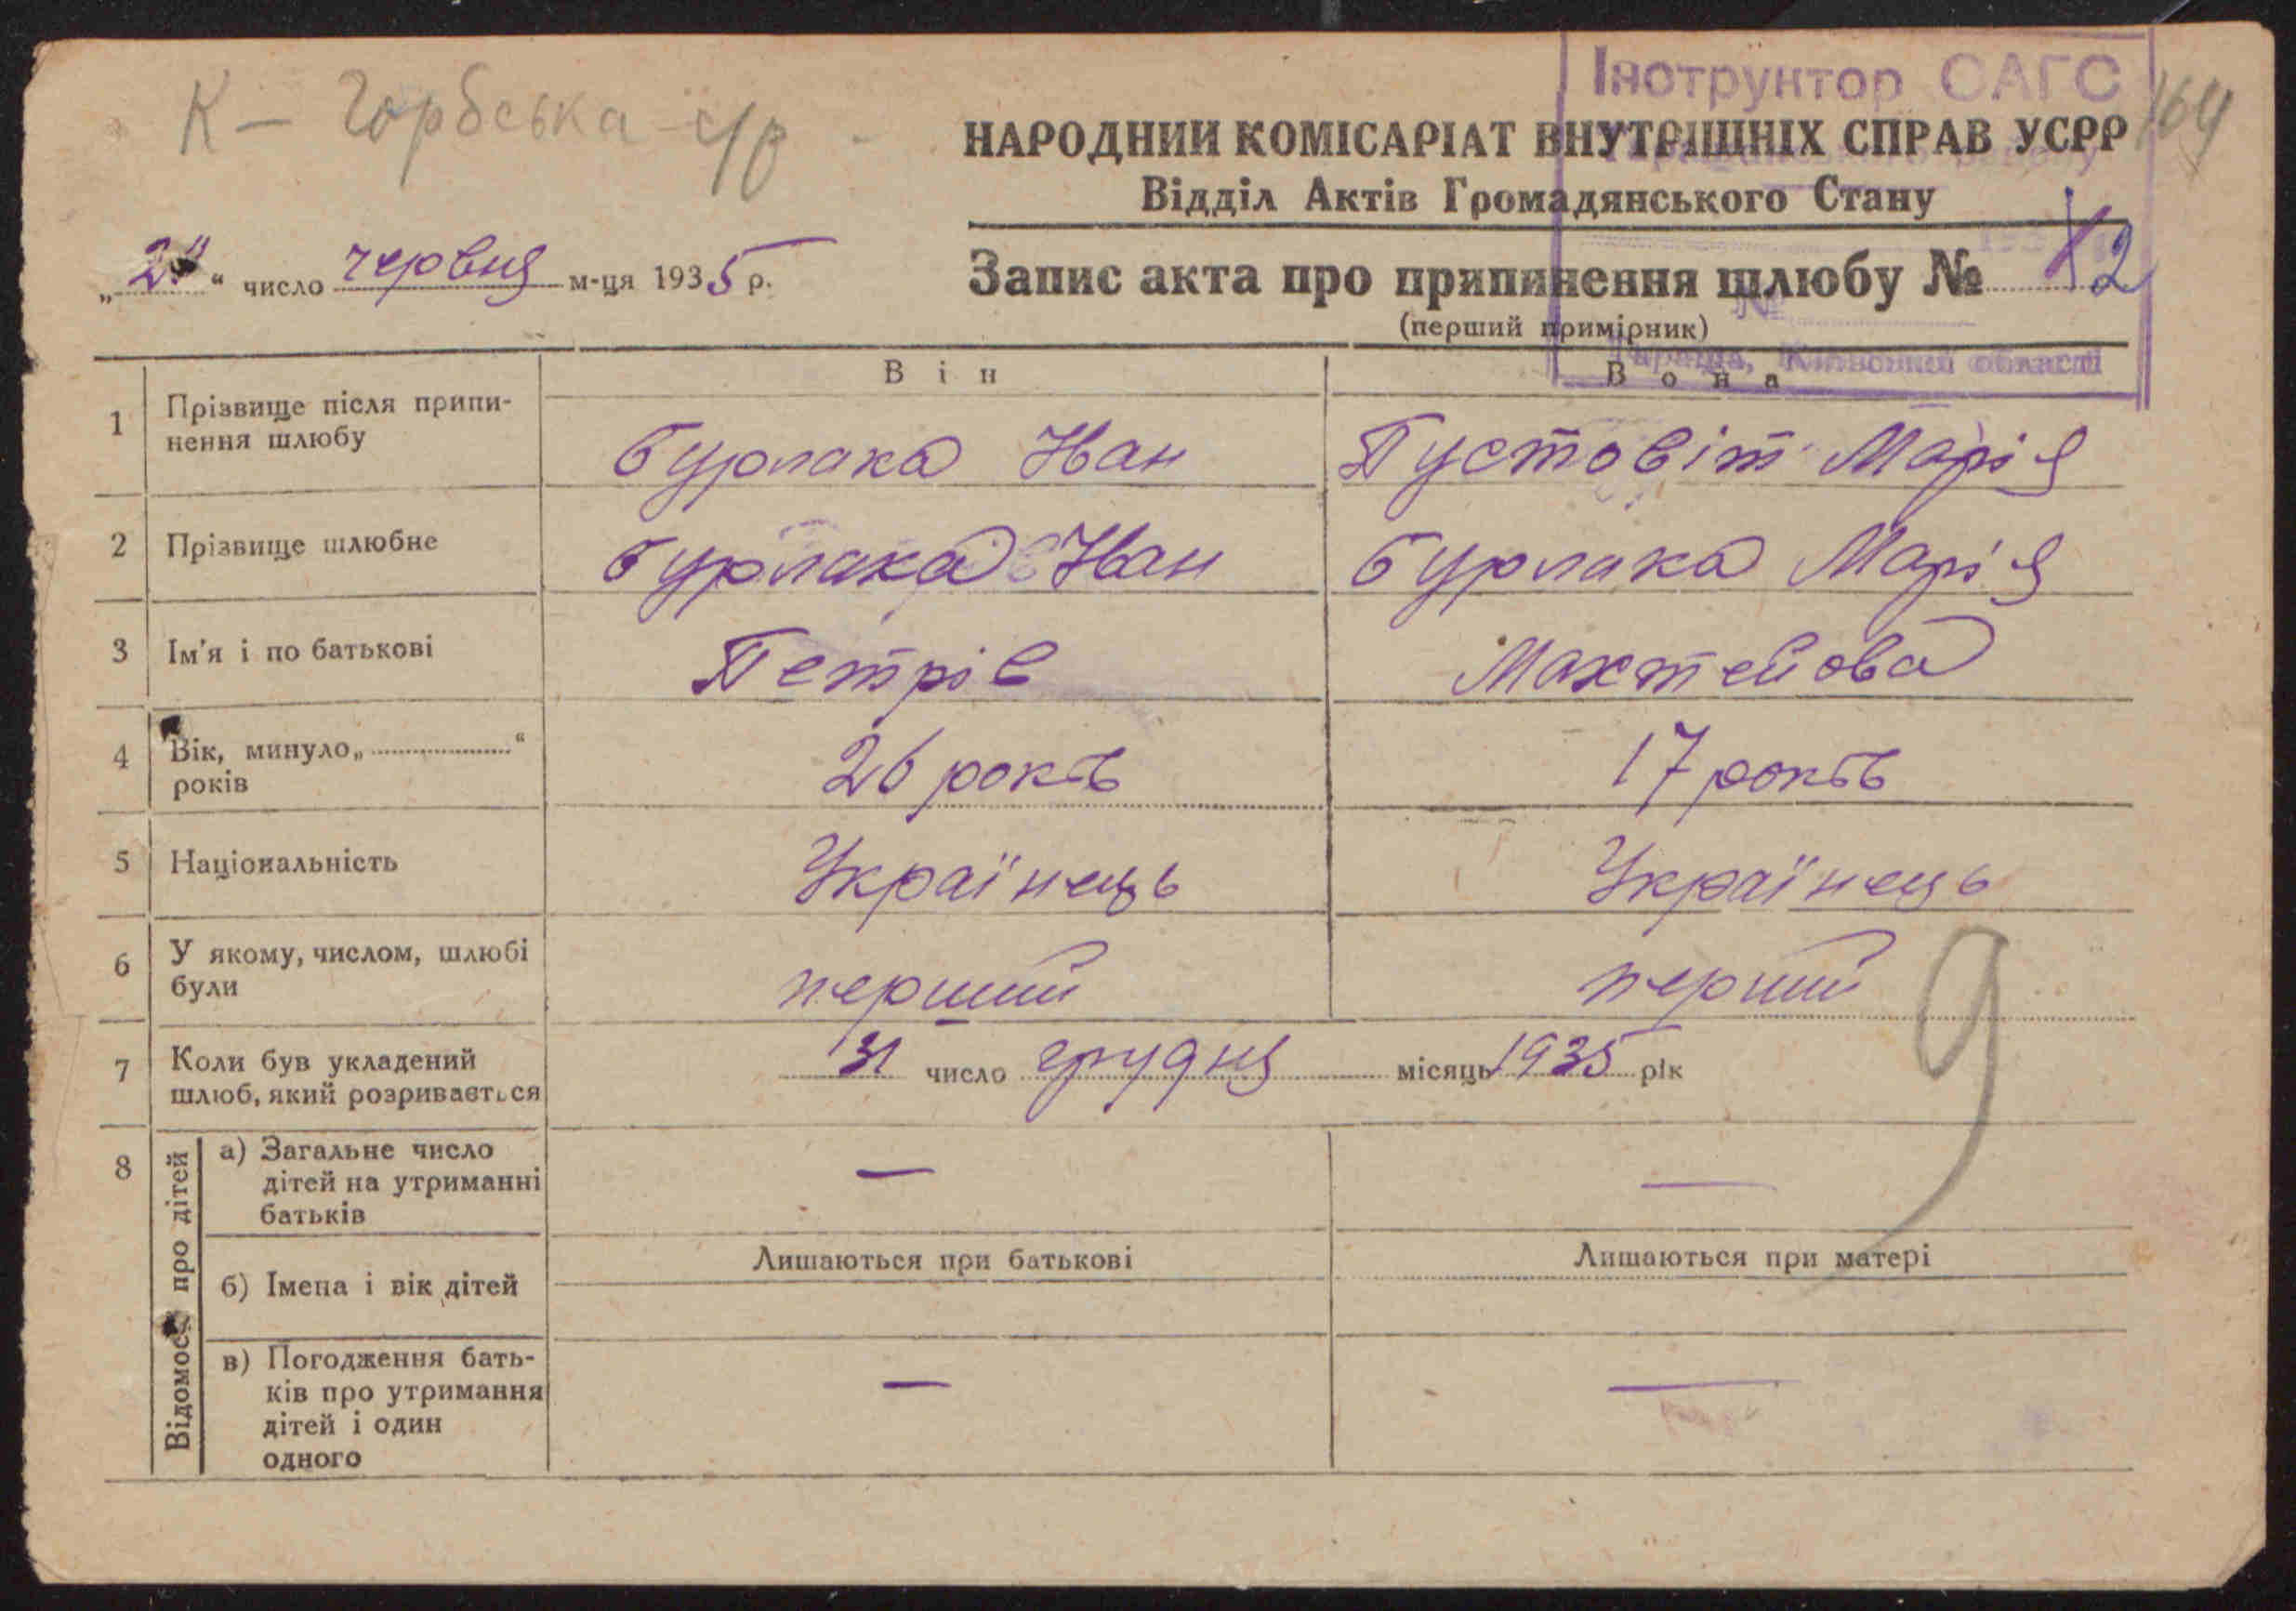 Інструктор ОАГС
К – Горбська с/р
164
НАРОДНИЙ КОМІСАРІАТ ВНУТРІШНІХ СПРАВ УСРР
Відділ Актів Громадянського Стану
„ “ число червня м-ця 1935 р.
Запис акта про припинення шлюбу № 12
(перший примірник)
Тараща, Київської області
Він Вона
1 Прізвище після припи-
нення шлюбу
Бурлака Іван Пустовіт Марія
2 Прізвище шлюбне Бурлака Іван Бурлака Марія
3 Ім'я і по батькові Петрів Махтейова
4 Вік, минуло „ “
років
26 років 17 років
5 Національність Українець Українець
6 У якому, числом, шлюбі
були
перший перший
9
7 Коли був укладений
шлюб, який розривається
31 число грудня місяць 1935 рік
8 Відомості про дітей
а) Загальне число
дітей на утриманні
батьків
— —
Лишаються при батькові Лишаються при матері
б) Імена і вік дітей
в) Погодження бать-
ків про утримання
дітей і один
одного
— —